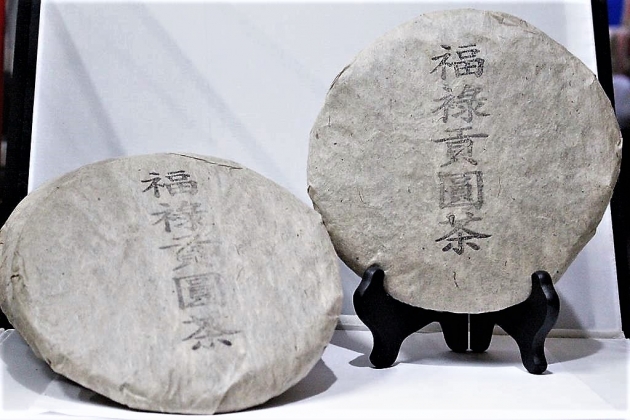 福祿貢圓茶
福祿貢圓茶